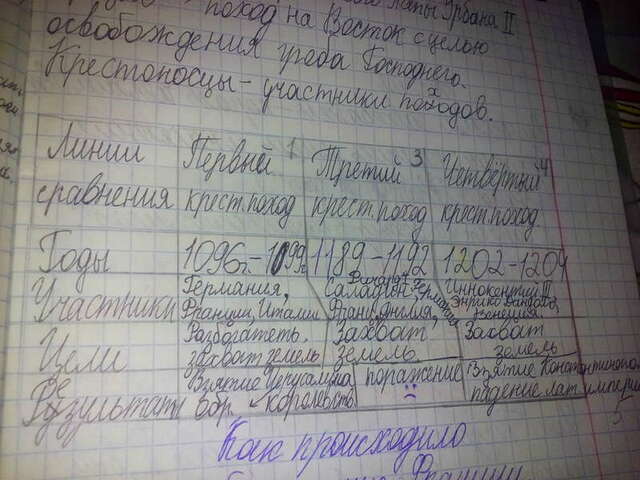 поход на Восток с целью
освобождения гроба Господнего.
Крестоносцы - участники походов.
Линии сравнения
Первый 1 крест. поход
Третий 3 крест. поход
Четвёртый 4 крест. поход
Годы 1096г. - 1099г. 1189 - 1192 1202 - 1204
Участники
Германия,
Франция, Италия
Саладин, Ричард, Германия
Франц, Англия,
Иннокентий III
Энрико Дандоло,
Венеция.
Цели
Разбогатеть.
захват земель
Захват
земель
Захват
земель
Результат
Взятие Иерусалима
обр. королевств
поражение
Взятие Константинопо
падение лат. импери
5
Как происходило
Франции